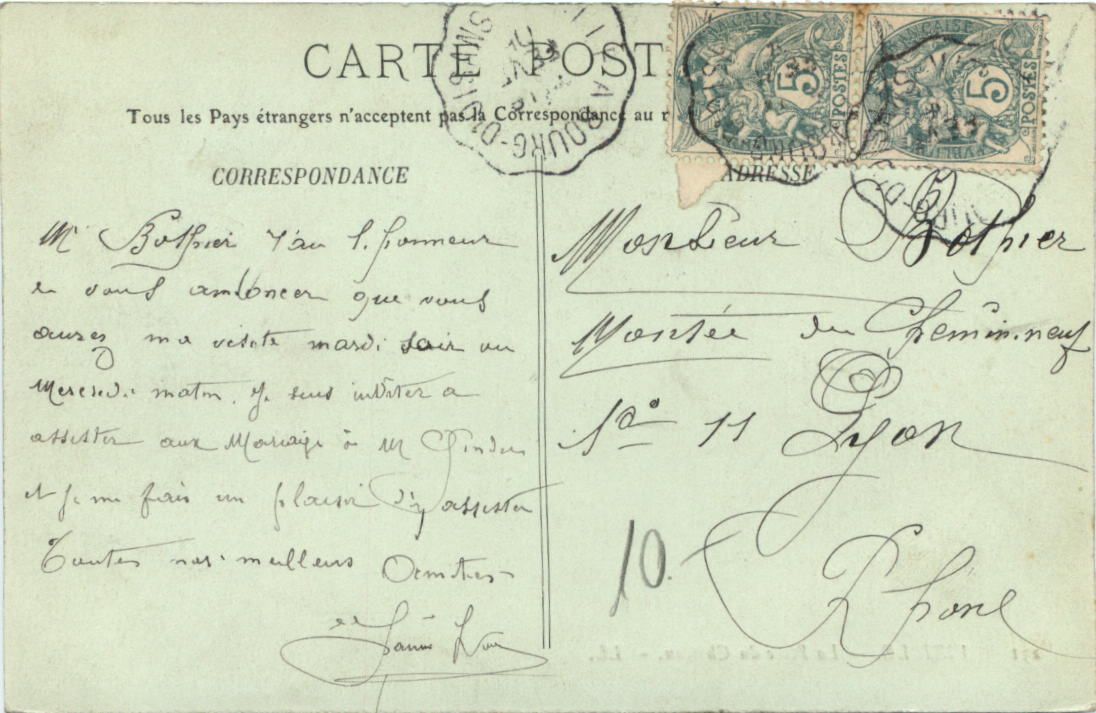 CARTE POST
Tous les Pays étrangers n'acceptent pas la Correspondance au r
CORRESPONDANCE
ADRESSE
FRANÇAISE
5c
POSTES
5c
POSTES
BOURG-D'OISANS
Mr Bothier J'au l'honneur
de vous annoncer que vous
aurez ma visite mardi soir ou
Mercredi matin. Je suis inviter a
assister aux Mariage à M
et je me fais un plaisir d'y assister
Toutes nos meilleurs Amities
Monsieur Bothier
Montée du Chemin-neuf
No 11 Lyon
Rhône
10.